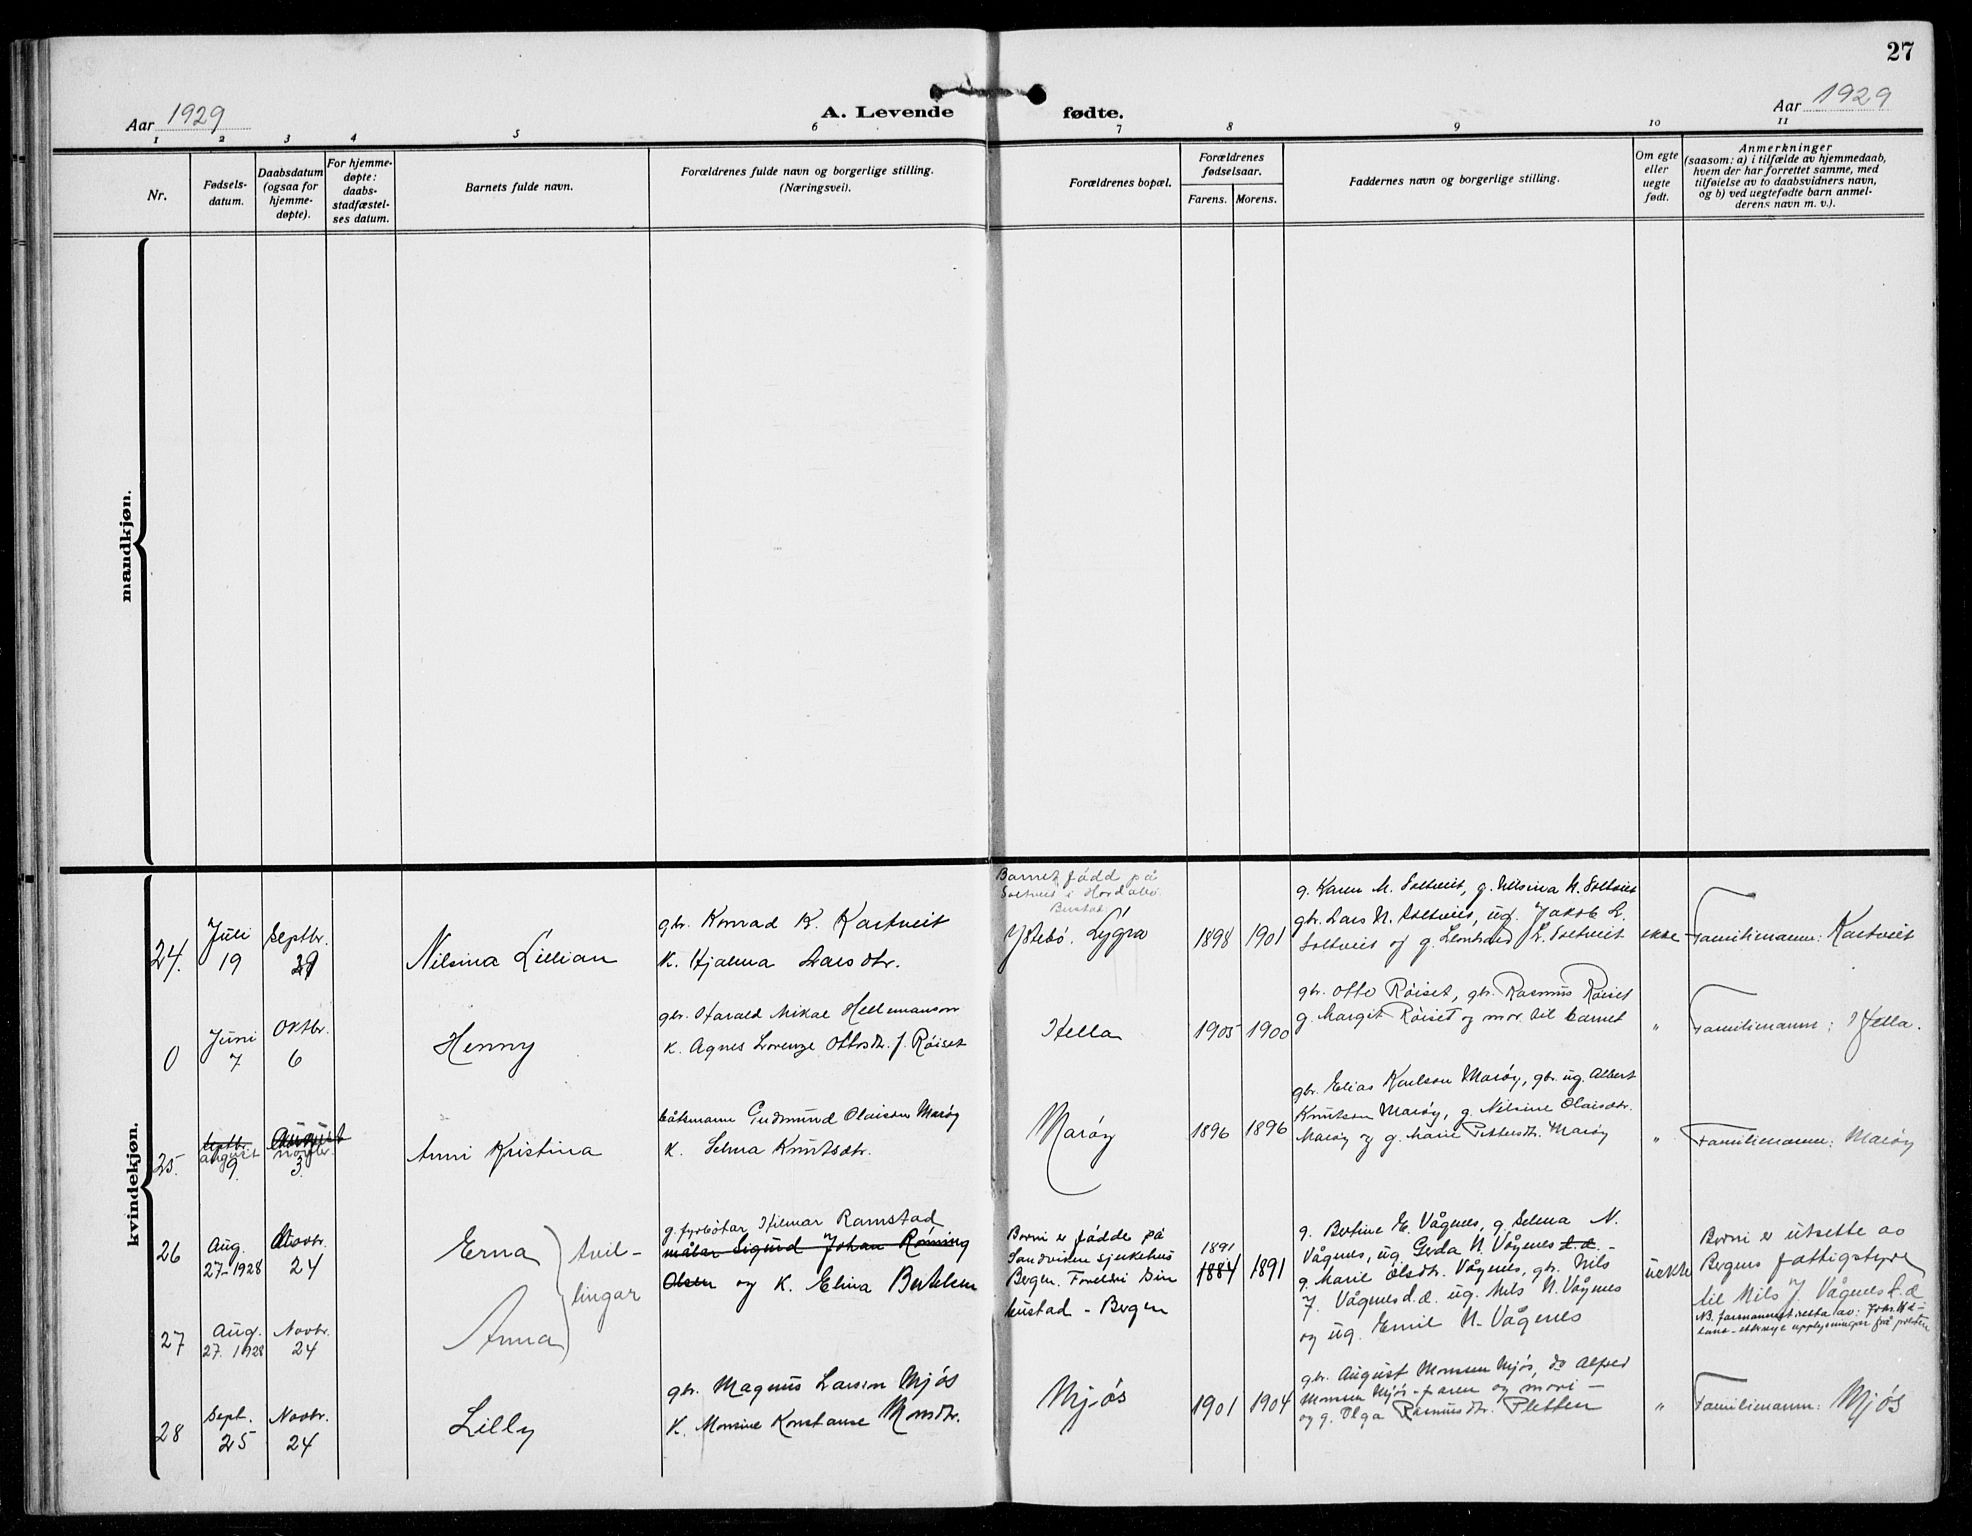 27
Aar 1929
A. Levende fødte.
Aar 1929
1 2 3 4 5 6 7 8 9 10 11
Nr.
Fødsels-
datum.
Daabsdatum
(ogsaa for
hjemme-
døpte).
For hjemme-
døpte:
daabs-
stadfæstel-
ses datum.
Barnets fulde navn.
Forældrenes fulde navn og borgerlige stilling.
(Næringsvei).
Forældrenes bopæl.
Forældrenes
fødselsaar.
Farens. Morens.
Faddernes navn og borgerlige stilling.
Om egte
eller
uegte
født.
Anmerkninger
(saasom: a) i tilfælde av hjemmedaab,
hvem der har forrettet samme, med
tilføielse av to daabsvidners navn,
og b) ved uegtefødte barn anmel-
derens navn m. v.).
mandkjøn.
kvindekjøn.
24.
Juli
19
Septbr.
29
Nilsina Lillian
gbr. Konrad K. Kartveit
K. Hjalma Larsdtr.
Barnet født på
Soltveit i Hordabø.
Bustad:
Ystebø. Lygra
1898 1901
g. Karen M. Soltveit, g. Nilsina N. Soltveit
gbr. Lars N. Soltveit, ug. Jakob L.
Soltveit og g. Leonhard L. Soltveit
ekte
Familienamn: Kartveit
0
Juni
7
Oktbr.
6
Henny
gbr. Harald Mikal Hellemanson
K. Agnes Lorenze Ottosdtr. f. Røiset
Hella
1905 1900
gbr. Otto Røiset, gbr. Rasmus Røiset
g. Margit Røiset og mor til barnet
"
Familienamn: Hella.
25.
Septbr.
august
9
August
novbr.
3.
Anni Kristina
båtsmann Gudmund Olaison Marøy
K. Selma Knutsdtr.
Marøy
1896 1896
gbr. Elias Karlson Marøy, gbr. ug. Albert
Knutson Marøy, g. Nilsine Olaisdtr.
Marøy og g. Marie Pettersdtr. Marøy
"
Familienamn: Marøy
26
Aug.
27-1928
Novbr.
24
Erna
tvil-
lingar
g. fyrbøtar Hilmar Ramstad
målar Sigurd Johan Rönning
Olsen og K. Elina Bertelsen
Borni er fødde på
Sandviken sjukehus
Bergen. Foreldri sin
bustad - Bergen
1891
1884 1891
g. Bertine E. Vågenes, g. Selma N.
Vågnes, ug. Gerda N. Vågenes d.d. -
g. Marie Olsdtr. Vågenes, gbr. Nils
J. Vågnes d.e. ug. Nils N. Vågnes
og ug. Emil N. Vågenes
uekte
Borni er utsette av
Bergens fattigstyre
til Nils J. Vågnes d.e
27
Aug.
27. 1928
Novbr.
24
Anna
28
Sept.
25
Novbr.
24
Lilly
gbr. Magnus Larsen Mjøs
K. Monsine Konstanse Monsdtr.
Mjøs
1901 1904
gbr. August Monsen Mjøs, do Alfred
Monsen Mjøs - faren og mori -
og g. Olga Rasmusdtr. Pletten
"
Familienamn: Mjøs